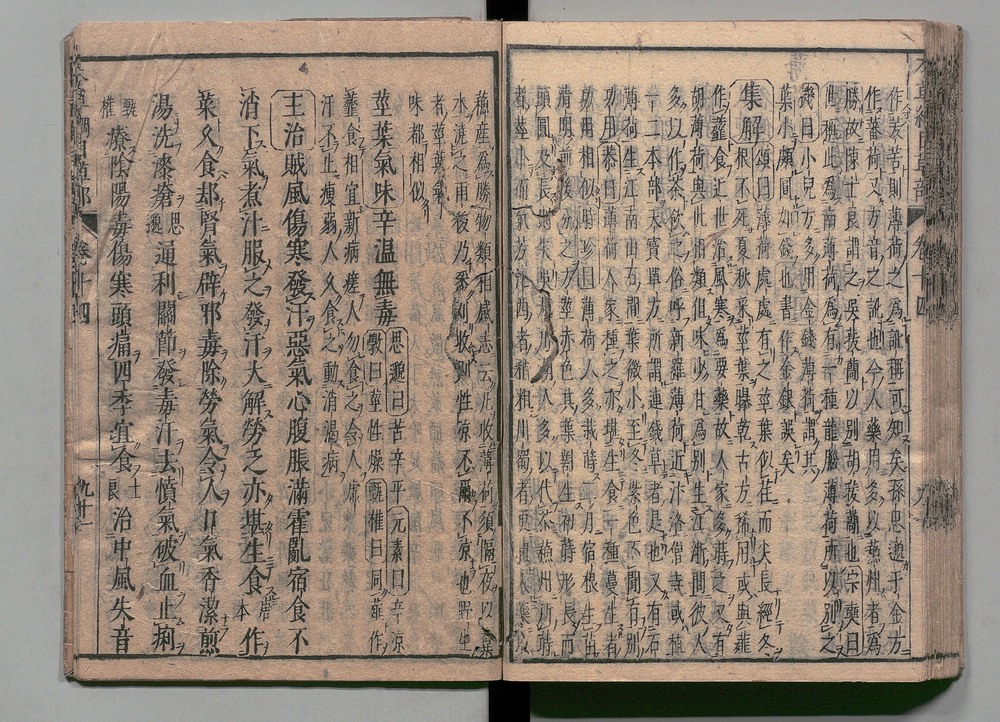 作茇苦則薄荷之爲訛稱可知矣孫思邈千金方
作蕃荷又方音之訛也今人藥用多以蘇州者爲
勝故陳士良謂之吳菝䕡以別胡菝䕡也宗奭曰
世稱此爲南薄荷爲有一種龍腦薄荷所以別之
機曰小兒方多用金錢薄荷謂其
葉小頗圓如錢也書作金銀誤矣
集解頌曰薄荷處處有之莖葉似荏而尖長經冬
根不死夏秋采莖葉曝乾古方稀用或與薤
作虀食近世治風寒爲要藥故人家多蒔之又有
胡薄荷與此相類但味少甘爲別生江浙間彼人
多以作茶飲之俗呼新羅薄荷近汴洛僧寺或植
一二本部天寶單方所謂連錢草者是也又有石
薄荷生江南山石間葉微小至冬紫色不聞有別
功用恭曰薄荷人家種之亦堪生食一種蔓生
功用相似時珍曰薄荷人多栽蒔二月宿根生苗
清明前後分之方莖赤色其葉對生初時形長而
頭圓及長則尖吳越川湖人多以代茶蘇州所蒔
者莖小而氣芳江西者稍粗川蜀者更粗入藥以
蘇產爲勝物類相感志云凡收薄荷須隔夜以糞
水澆之雨後乃可刈收則性涼不爾不涼也野生
者莖葉氣
味都相似
莖葉氣味辛溫無毒思邈曰苦辛平元素曰辛涼
斅曰莖性燥甄權曰同薤作
虀食相宜新病瘥人勿食之令人虛
汗不止瘦弱人久食之動消渴病
主治賊風傷寒發汗惡氣心腹脹滿霍亂宿食不
消下氣煮汁服之發汗大解勞乏亦堪生食唐本作
菜久食却腎氣辟邪毒除勞氣令人口氣香潔煎
湯洗漆瘡思邈通利關節發毒汗去憤氣破血止痢
甄權療陰陽毒傷寒頭痛四季宜食士良治中風失音
卷十四
九十一